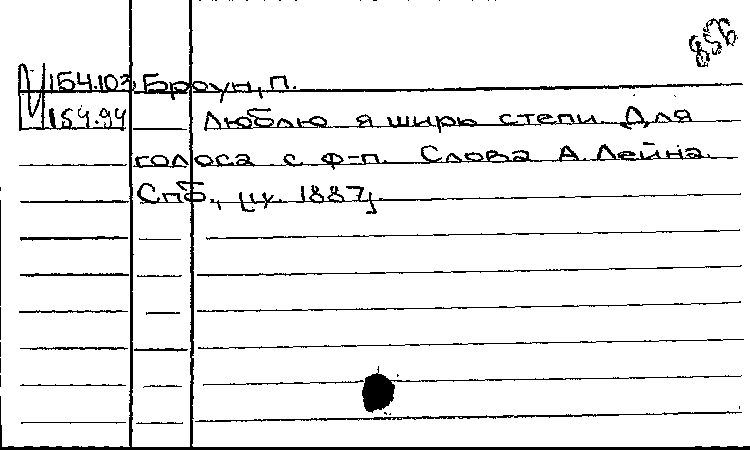 154.103 Броун, П.
154.94 Люблю я ширь степи. Для
голоса с ф-п. Слова А. Лейна.
Спб., [ц. 1887].